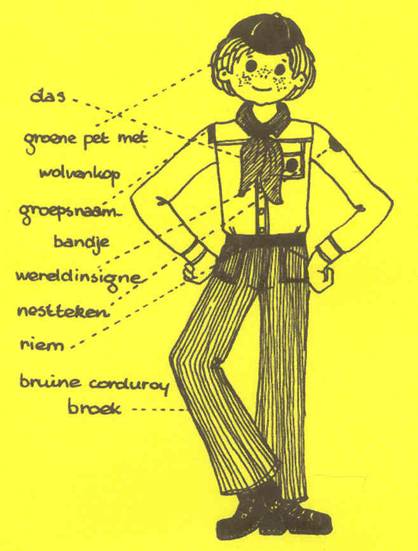 das
groene pet met
wolvenkop
groepsnaam-
bandje
wereldinsigne
nestteken
riem
bruine corduroy
broek